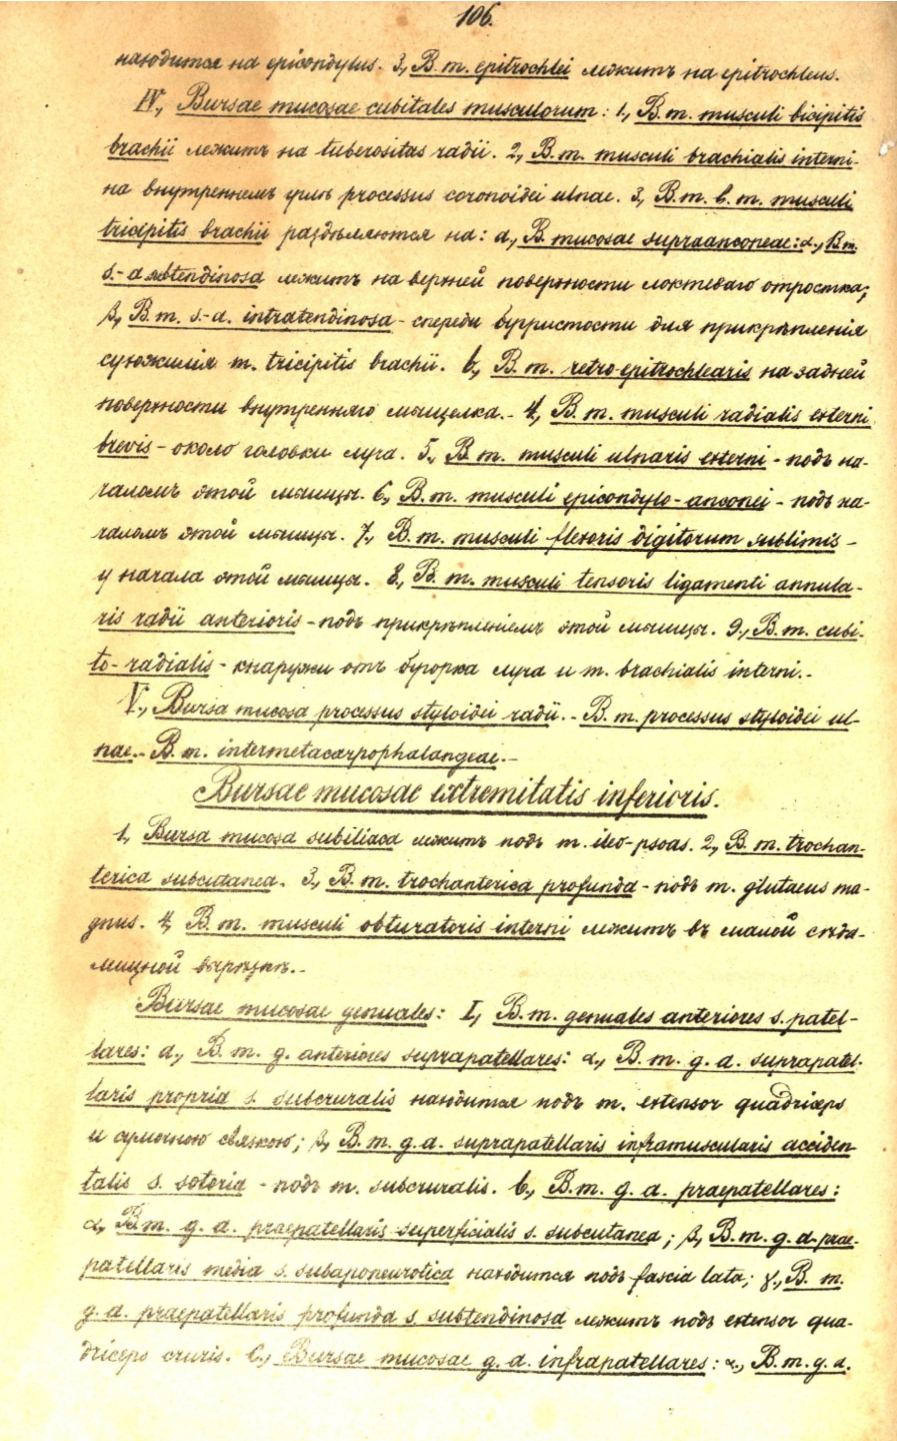 106.
находится на epicondylus. 3, B. m. epitrochlei лежитъ на epitrochleus.
IV, Bursae mucosae cubitales musculorum: 1, B. m. musculi bicipitis
brachii лежитъ на tuberositas radii. 2, B. m. musculi brachialis interni-
на внутреннемъ углѣ processus coronoidei ulnae. 3, B. m. b. m. musculi
tricipitis brachii раздѣляются на: a, B. mucosae supraanconeae: α, B. m.
s.-a subtendinosa лежитъ на верхней поверхности локтеваго отростка;
β, B. m. s.-a. intratendinosa - спереди бугристости для прикрѣпленія
сухожилія m. tricipitis brachii. b, B. m. retro-epitrochlearis на задней
поверхности внутренняго мыщелка.- 4, B. m. musculi radialis externi
brevis - около головки луча. 5, B. m. musculi ulnaris externi - подъ на-
чаломъ этой мышцы. 6, B. m. musculi epicondylo-anconei - подъ на-
чаломъ этой мышцы. 7, B. m. musculi flexoris digitorum sublimis -
у начала этой мышцы. 8, B. m. musculi tensoris ligamenti annula-
ris radii anterioris - подъ прикрѣпленіемъ этой мышцы. 9, B. m. cubi-
to-radialis - кнаружи отъ бугорка луча и m. brachialis interni.-
V, Bursa mucosa processus styloidei radii. - B. m. processus styloidei ul-
nae.- B. m. intermetacarpophalangeae.-
Bursae mucosae extremitatis inferioris.
1, Bursa mucosa subiliaca лежитъ подъ m. ileo-psoas. 2, B. m. trochan-
terica subcutanea. 3, B. m. trochanterica profunda - подъ m. glutaeus ma-
gnus. 4, B. m. musculi obturatoris interni лежитъ въ малой сѣда-
лищной вырѣзкѣ.-
Bursae mucosae genuales: I, B. m. genuales anteriores s. patel-
lares: a, B. m. g. anteriores suprapatellares: α, B. m. g. a. suprapatel-
laris propria s. subcruralis находится подъ m. extensor quadriceps
и сумочною связкою; β, B. m. g. a. suprapatellaris inframuscularis acciden-
talis s. soteria - подъ m. subcruralis. b, B. m. g. a. praepatellares:
α, B. m. g. a. praepatellaris superficialis s. subcutanea; β, B. m. g. a. prae-
patellaris media s. subaponeurotica находится подъ fascia lata; γ, B. m.
g. a. praepatellaris profunda s. subtendinosa лежитъ подъ extensor qua-
driceps cruris. c, Bursae mucosae g. a. infrapatellares: α, B. m. g. a.